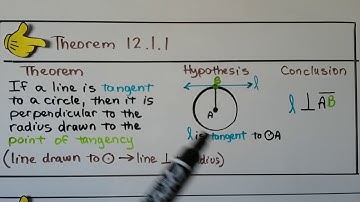 Theorem 12.1.1
Theorem
If a line is tangent
to a circle, then it is
perpendicular to the
radius drawn to the
point of tangency
(line drawn to ⊙ → line ⊥ radius)
Hypothesis
B
l
A
l is tangent to ⊙A
Conclusion
l ⊥ AB